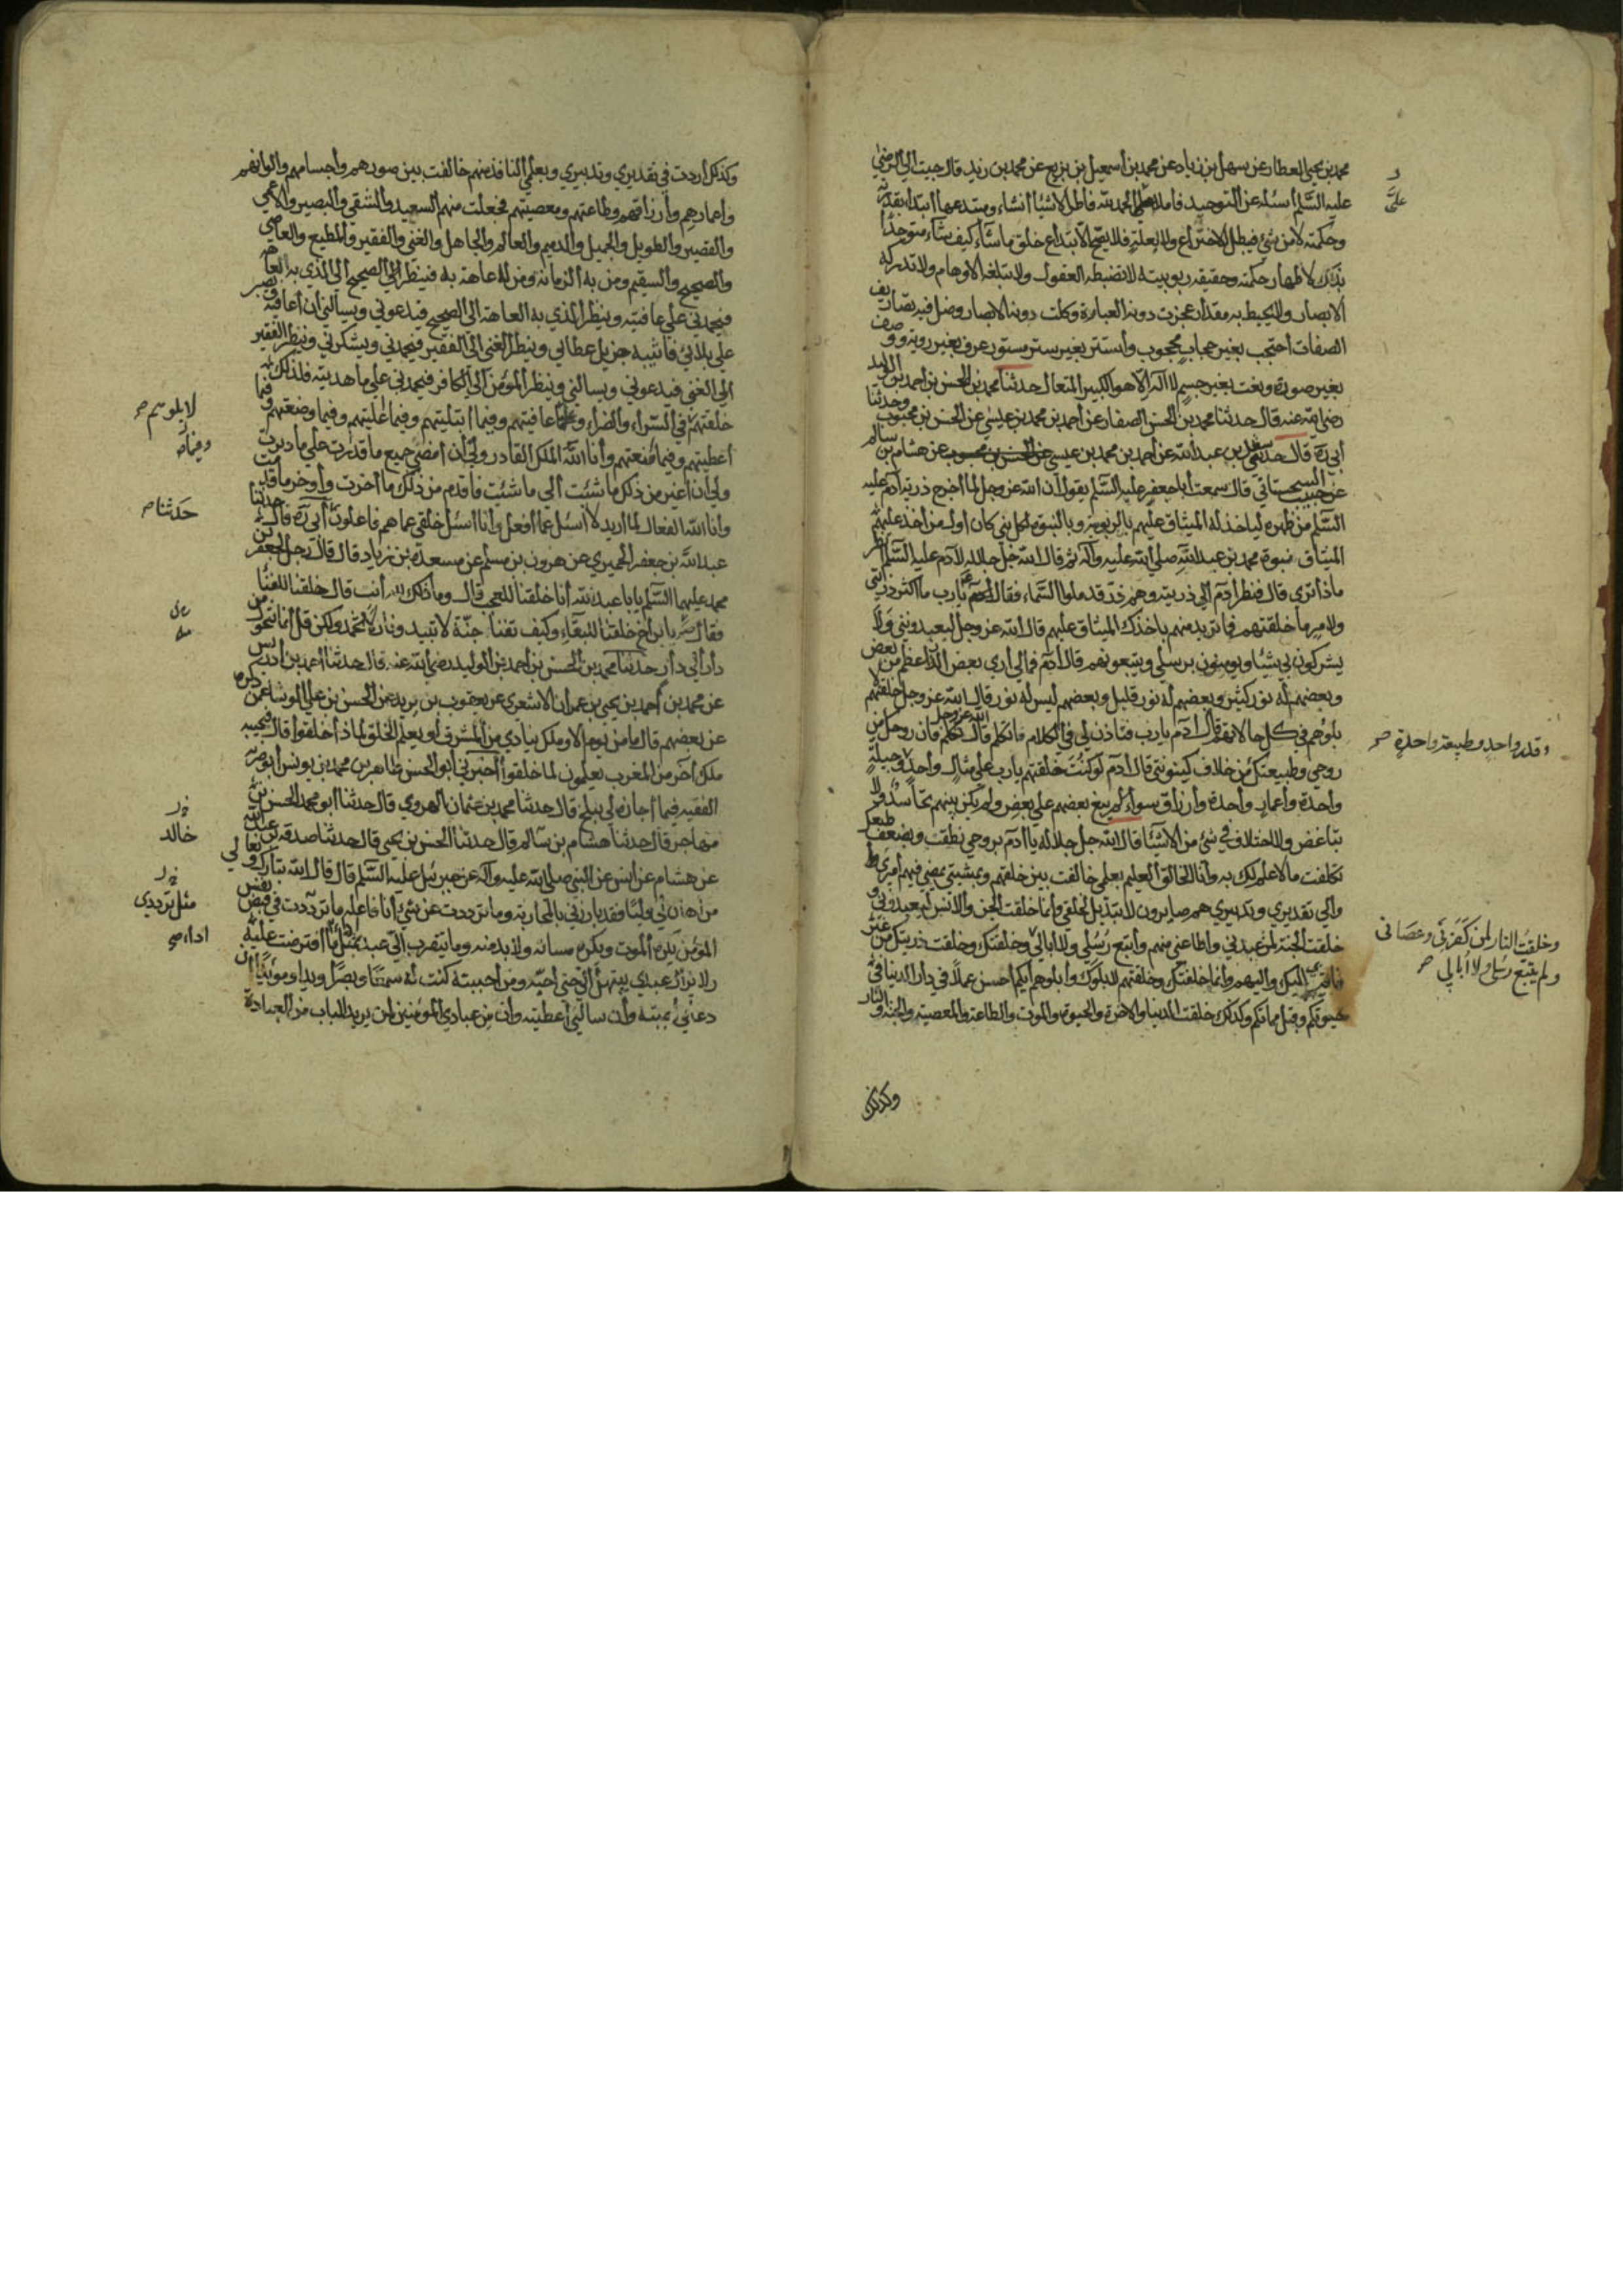 محمد بن يحيى العطار عن سهل بن زياد عن محمد بن اسمعيل بن بزيع عن محمد بن زيد قال جيت الي الرضي
عليه السلم أسئله عن التوحيد فاملا علي الحمد لله فاطر الاشيا انشاء ومبتدعها ابتداء بقدرته
وحكمته لا من شي فيبطل الاختراع ولا لعلة فلا يصح الابتداع خلق ما شاء كيف شاء متوحدا
بذلك لاظهار حكمته وحقيقه ربوبيته لا تضبطه العقول ولا تبلغه الاوهام ولا تدركه
الابصار ولا يحيط به مقدار عجزت دونه العبارة وكلت دونه الابصار وضل فيه تصاريف
الصفات احتجب بغير حجاب محجوب وأستتر بغير ستر مستور عرف بغير روية ووصف
بغير صورة ونعت بغير جسم لا اله الا هو الكبير المتعال حدثنا محمد بن الحسن بن احمد بن الوليد
رضي الله عنه قال حدثنا محمد بن الحسن الصفار عن أحمد بن محمد بن عيسي عن الحسن بن محبوب وحدثنا
أبي ره قال حدثنا سعد بن عبد الله عن أحمد بن محمد بن عيسي عن الحسن بن محبوب عن هشام بن سالم
عن حبيب السجستاني قال سمعت أبا جعفر عليه السلم يقول ان الله عز وجل لما أخرج ذرية ادم عليه
السلم من ظهره لياخذ له الميثاق عليهم بالربوبية وبالنبوة لكل نبي كان أول من أخذ عليهم
الميثاق نبوة محمد بن عبد الله صلي الله عليه وآله ثم قال الله جل جلاله لادم عليه السلم انظر
ماذا تري قال فنظر ادم الي ذريته وهم ذر قد ملوا السماء فقال آدم يارب ما اكثر ذريتي
ولامر ما خلقتهم فما تريد منهم باخذك الميثاق عليهم قال الله عز وجل ليعبدونني ولا
يشركون بي شيئا ويومنون برسلي ويتبعونهم قال آدم فمالي اري بعض الذر اعظم من بعض
وبعضهم له نور كثير وبعضهم له نور قليل وبعضهم ليس له نور قال الله عز وجل خلقتهم
بلوهم في كل حالاتهم قال ادم يارب فتاذن لي في الكلام فاتكلم قال الله عز وجل تكلم فان روحك من
روحي وطبيعتك من خلاف كينونتي قال ادم لو كنت خلقتهم يارب علي مثال واحد وجبلة
واحدة وأعمار واحدة وأرزاق سواء لم يبغ بعضهم علي بعض ولم يكن بينهم تحاسد ولا
تباغض ولا اختلاف في شئ من الاشيا قال الله جل جلاله يا ادم بروحي نطقت وبضعف طبعك
تكلفت ما لا علم لك به وأنا الخالق العليم بعلمي خالفت بين خلقتهم وبمشيتي يمضي فيهم أمري
والي تقديري وتدبيري هم صايرون لا تبديل لخلقي وأنما خلقت الجن والانس ليعبدوني و
خلقت الجنة لمن عبدني واطاعني منهم وأتبع رسلي ولا ابالي وخلقتك وخلقت ذريتك من غير
فاقة بي اليك واليهم وانما خلقتك وخلقتهم لابلوك وأبلوهم أيكم أحسن عملا في دار الدنيا في
حيوتكم وقبل مماتكم وكذلك خلقت الدنيا والاخرة والحيوة والموت والطاعة والمعصية والجنة والنار
وكذلك
علي
وقدر واحد وطبيعة واحدة صح
وخلقت النار لمن كفر بي وعصاني
ولم يتبع رسلي ولا أبالي صح
وكذلك أردت في تقديري وتدبيري وبعلمي النافذ فيهم خالفت بين صورهم وأجسامهم والوانهم
وأعمارهم وأرزاقهم وطاعتهم ومعصيتهم فجعلت منهم السعيد والشقي والبصير والاعمي
والقصير والطويل والجميل والدميم والعالم والجاهل والغني والفقير والمطيع والعاصي
والصحيح والسقيم ومن به الزمانه ومن لا عاهة به فينظر الي الصحيح الي الذي به العاهة
فيحمدني علي عافيته وينظر الذي به العاهة الي الصحيح فيدعوني ويسالني ان أعافيه ويصبر
علي بلائي فاثيبه جزيل عطائي وينظر الغني الي الفقير فيحمدني ويشكرني وينظر الفقير
الي الغني فيدعوني ويسالني وينظر المؤمن الي الكافر فيحمدني علي ما هديته فلذلك
خلقتهم في السراء والضراء وفيما عافيتهم وفيما ابتليتهم وفيما اعطيتهم وفيما
أعطيتهم وفيما أمنعهم وأنا الله الملك القادر ولي أن أمضي جميع ما قدرت علي ما دبرت
ولي ان أغير من ذلك ما شئت الي ما شئت فاقدم من ذلك ما أخرت وأوخر ما قدمت
وانا الله الفعال لما اريد لا أسئل عما أفعل وأنا اسئل خلقي عما هم فاعلون أبي ره قال حدثنا
عبد الله بن جعفر الحميري عن هرون بن مسلم عن مسعدة بن زياد قال قال رجل لجعفر بن
محمد عليهما السلم يابا عبد الله أنا خلقنا للعجب قال وما ذلك لله أنت قال خلقنا للفنا
فقال مه يا ابن أخ خلقنا للبقاء وكيف تفنا جنة لا تبيد ونار لا تخمد ولكن قل انما نتحول من
دار الي دار حدثنا محمد بن الحسن بن احمد بن الوليد رضي الله عنه قال حدثنا احمد بن ادريس
عن محمد بن أحمد بن يحيي بن عمران الاشعري عن يعقوب بن يزيد عن الحسن بن علي الوشا عمن ذكره
عن بعضهم قال ما من يوم الا وملك ينادي من المشرق لو يعلم الخلق لماذا خلقوا قال فيجيبه
ملك آخر من المغرب يعلمون لما خلقوا أخبرني أبو الحسن طاهر بن محمد بن يونس ابو نصر
الفقيه فيما أجازه لي ببلخ قال حدثنا محمد بن عثمان الهروي قال حدثنا ابو محمد الحسن بن
مهاجر قال حدثنا هشام بن سالم قال حدثنا الحسن بن يحيي قال حدثنا صدقه بن عبد الله
عن هشام عن أنس عن النبي صلي الله عليه وآله عن جبرئيل عليه السلم قال قال الله تبارك وتعالي
من أهان لي وليا فقد بارزني بالمحاربة وما ترددت عن شئ أنا فاعله ما ترددت في قبض نفس
المؤمن يكره الموت ويكره مساته ولا بد منه وما يتقرب الي عبد بمثل ما افترضت عليه
ولا يزال عبدي يبتهل الي حتي أحبه ومن أحببته كنت له سمعا وبصرا ويدا ومويدا ان
دعاني أجبته وأن سالني أعطيته وأن من عبادي المؤمنين لمن يريد الباب من العبادة
لابلوهم صح
وفيما
حدثنا صح
خالد
مثل ترددي
اداء صح